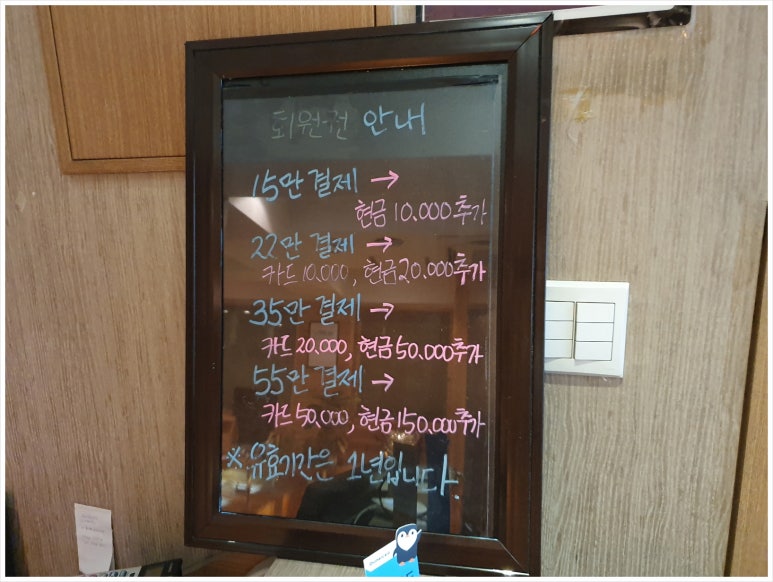 회원권 안내
15만 결제 →
현금 10.000추가
22만 결제 →
카드 10,000, 현금 20.000추가
35만 결제 →
카드 20,000, 현금 50.000추가
55만 결제 →
카드 50,000, 현금 150.000추가
※ 유효기간은 1년입니다.